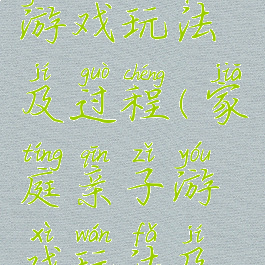 游戏玩法
jí guò chéng jiā
及过程(家
tíng qīn zǐ yóu
庭亲子游
xì wán fǎ jí
戏玩法及